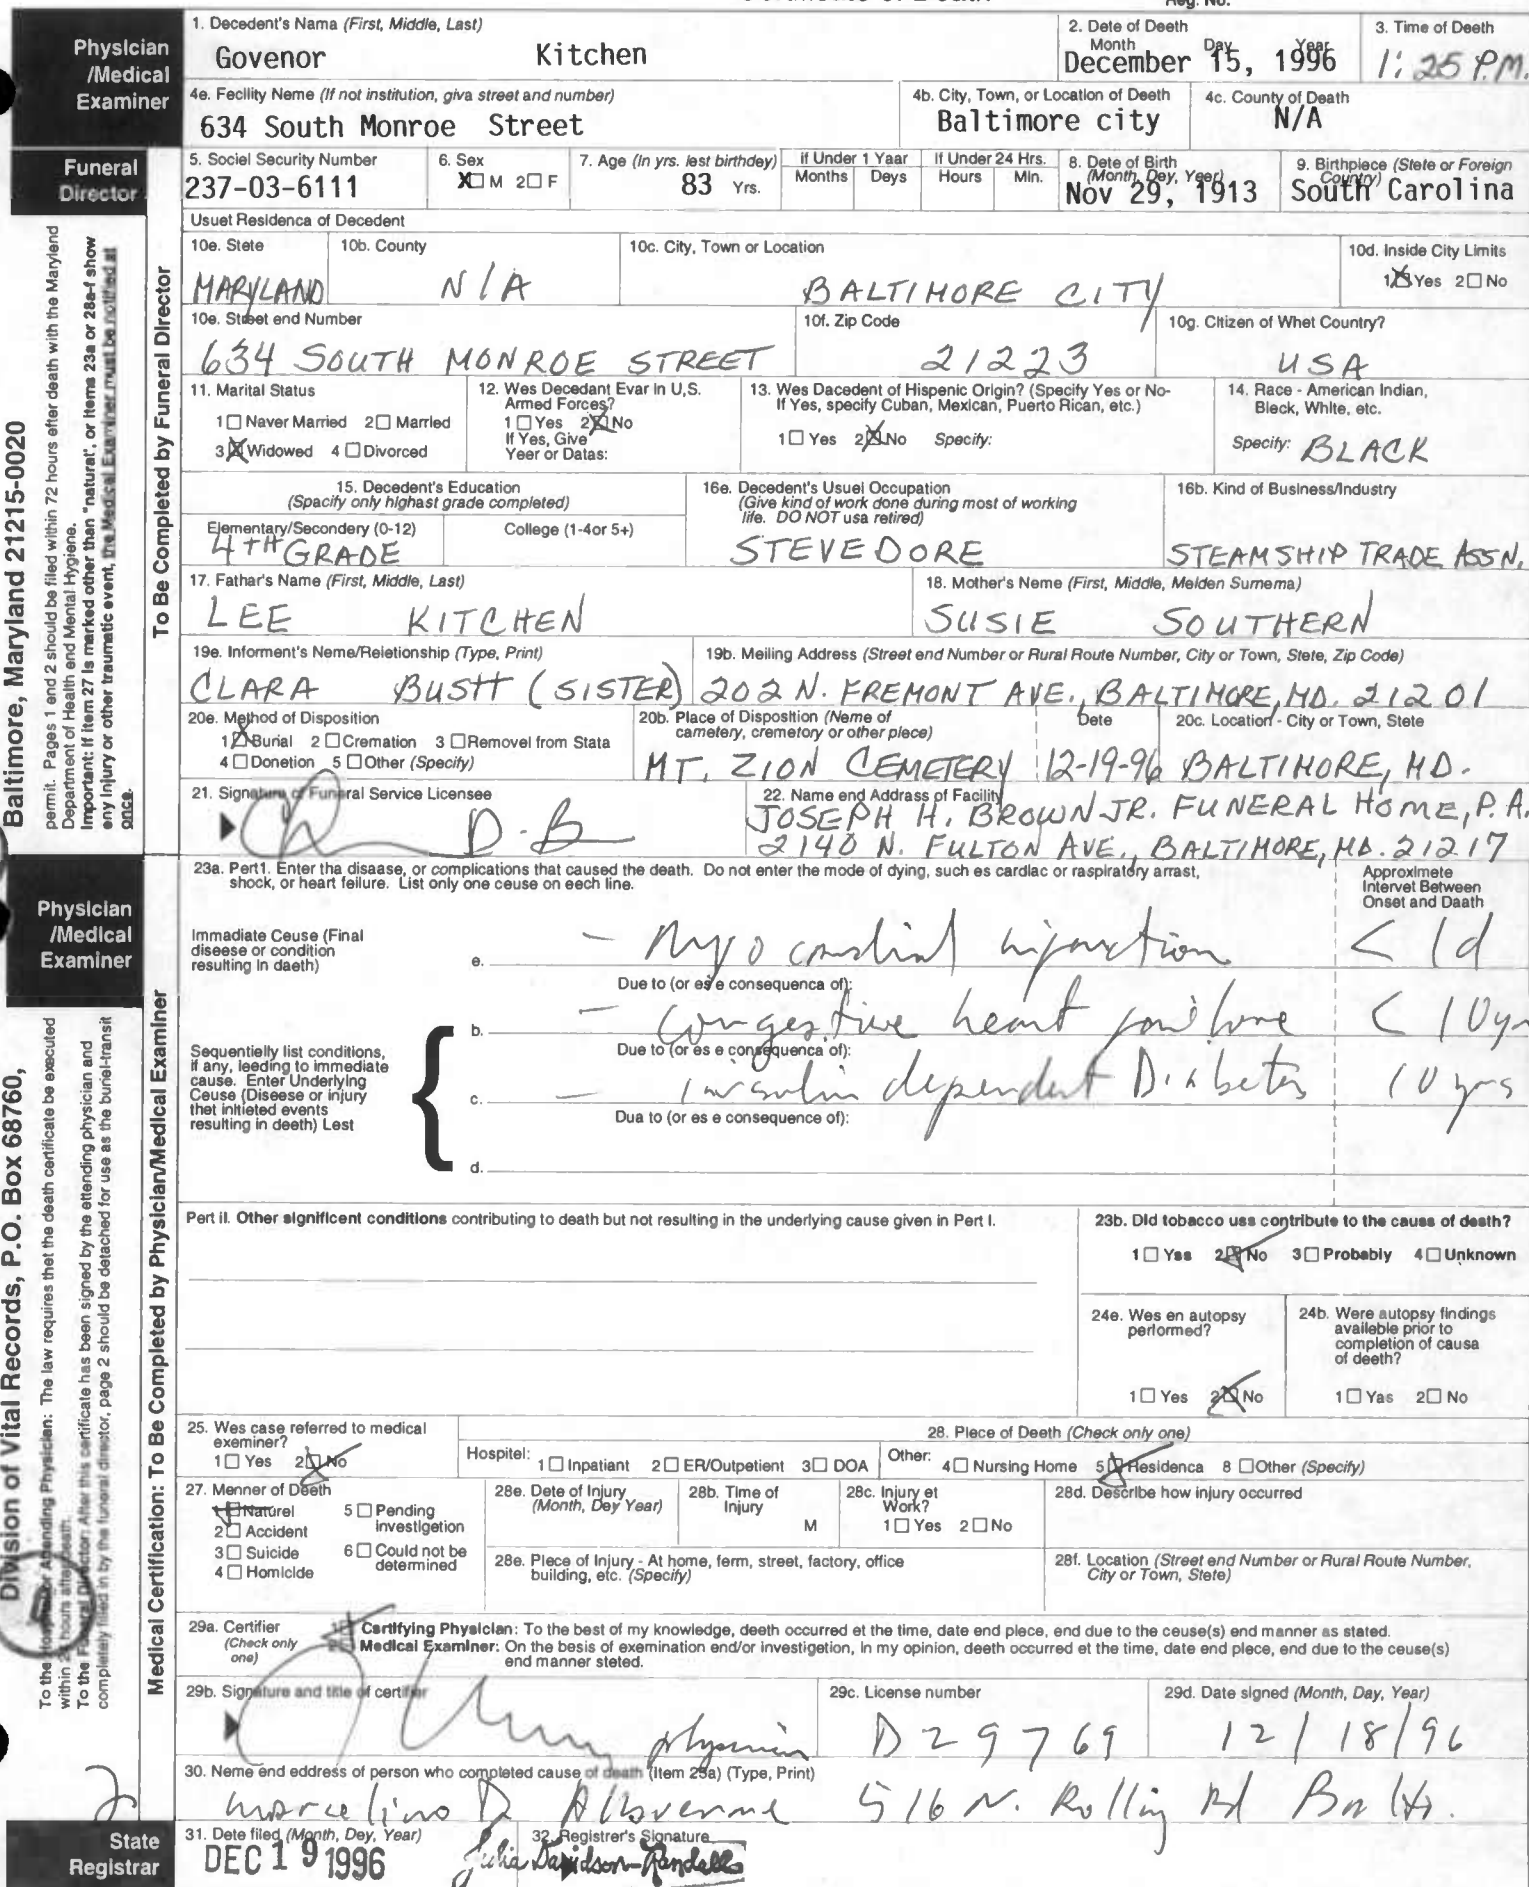 1. Decedent's Name (First, Middle, Last)
Govenor Kitchen
2. Date of Deeth
Month Day, Year
December 15, 1996
3. Time of Deeth
1:25 P.M.
Physician
/Medical
Examiner
4e. Fecility Name (If not institution, giva street and number)
634 South Monroe Street
4b. City, Town, or Location of Deeth
Baltimore city
4c. County of Death
N/A
Funeral
Director
5. Sociel Security Number
237-03-6111
6. Sex
X☐ M 2☐ F
7. Age (In yrs. lest birthdey)
83 Yrs.
If Under 1 Yaar
Months Deys
If Under 24 Hrs.
Hours Min.
8. Dete of Birth
(Month, Dey, Year)
Nov 29, 1913
9. Birthplece (Stete or Foreign
Country)
South Carolina
Usuet Residenca of Decedent
10e. Stete
MARYLAND
10b. County
N/A
10c. City, Town or Location
BALTIMORE CITY
10d. Inside City Limits
1☒ Yes 2☐ No
10e. Street end Number
634 SOUTH MONROE STREET
10f. Zip Code
21223
10g. Citizen of Whet Country?
USA
11. Marital Status
1☐ Naver Married 2☐ Married
3☒ Widowed 4☐ Divorced
12. Wes Decedant Evar in U,S.
Armed Forces?
1☐ Yes 2☒ No
If Yes, Give
Yeer or Datas:
13. Wes Dacedent of Hispenic Origin? (Specify Yes or No-
If Yes, specify Cuban, Mexican, Puerto Rican, etc.)
1☐ Yes 2☒ No Specify:
14. Race - American Indian,
Bleck, White, etc.
Specify: BLACK
15. Decedent's Education
(Spacify only highast grade completed)
Elementary/Secondery (0-12)
4TH GRADE
College (1-4or 5+)
16e. Decedent's Usuel Occupation
(Give kind of work done during most of working
life. DO NOT usa retired)
STEVEDORE
16b. Kind of Business/Industry
STEAMSHIP TRADE ASSN.
17. Fathar's Name (First, Middle, Last)
LEE KITCHEN
18. Mother's Neme (First, Middle, Melden Surnema)
SUSIE SOUTHERN
19e. Informent's Neme/Reletionship (Type, Print)
CLARA BUSH (SISTER)
19b. Meiling Address (Street end Number or Rural Route Number, City or Town, Stete, Zip Code)
202 N. FREMONT AVE., BALTIMORE, MD. 21201
20e. Method of Disposition
1☒ Burial 2☐ Cremation 3☐ Removel from Stata
4☐ Donetion 5☐ Other (Specify)
20b. Place of Disposition (Neme of
cametery, cremetory or other plece)
MT. ZION CEMETERY
Dete
12-19-96
20c. Location - City or Town, State
BALTIMORE, MD.
21. Signature of Funeral Service Licensee
22. Name end Addrass of Facility
JOSEPH H. BROWN JR. FUNERAL HOME, P.A.
2140 N. FULTON AVE., BALTIMORE, MD. 21217
To Be Completed by Funeral Director
Baltimore, Maryland 21215-0020
permit. Pages 1 end 2 should be filed within 72 hours efter deeth with the Marylend
Department of Health end Mental Hygiene.
Important: If Item 27 is marked other than "natural", or items 23a or 28a-f show
any injury or other traumatic event, the Medical Examiner must be notified at
once.
Physician
/Medical
Examiner
23a. Pert1. Enter tha disaase, or complications that caused the death. Do not enter the mode of dying, such es cardlac or raspiratory arrast,
shock, or heart feilure. List only one ceuse on eech line.
Approximete
Intervet Between
Onset and Daath
Immediate Ceuse (Final
diseese or condition
resulting in daeth)
e. - Myocardial infarction < 1d
Due to (or es e consequenca of):
b. - congestive heart failure < 10yr
Due to (or es e consequenca of):
c. - insulin dependent Diabetes 10 yrs
Dua to (or es e consequence of):
d.
Sequentielly list conditions,
if any, leeding to immediate
cause. Enter Underlying
Ceuse (Diseese or injury
thet initieted events
resulting in deeth) Lest
Part II. Other significent conditions contributing to death but not resulting in the underlying cause given in Part I.
23b. Did tobacco uss contribute to the causs of death?
1☐ Yss 2☒ No 3☐ Probably 4☐ Unknown
24e. Wes en autopsy
performed?
1☐ Yes 2☒ No
24b. Were autopsy findings
available prior to
completion of causa
of deeth?
1☐ Yas 2☐ No
25. Wes case referred to medical
examiner?
1☐ Yes 2☒ No
28. Plece of Deeth (Check only one)
Hospitel: 1☐ Inpatiant 2☐ ER/Outpetient 3☐ DOA
Other: 4☐ Nursing Home 5☒ Residenca 8☐ Other (Specify)
27. Menner of Deeth
☒ Naturel
2☐ Accident
3☐ Suicide
4☐ Homicide
5☐ Pending
investigetion
6☐ Could not be
determined
28e. Dete of Injury
(Month, Dey Year)
28b. Time of
Injury
M
28c. Injury et
Work?
1☐ Yes 2☐ No
28d. Describe how injury occurred
28e. Plece of Injury - At home, ferm, street, factory, office
building, etc. (Specify)
28f. Location (Street end Number or Rural Route Number,
City or Town, Stete)
29a. Certifier
(Check only
one)
Cartifying Physician: To the best of my knowledge, deeth occurred et the time, date end plece, end due to the ceuse(s) end manner as stated.
Medical Examiner: On the besis of examination end/or investigetion, in my opinion, deeth occurred et the time, date end plece, end due to the ceuse(s)
end manner steted.
29b. Signature and title of certifier
physician
29c. License number
D29769
29d. Date signed (Month, Day, Year)
12/18/96
30. Neme end eddress of person who completed cause of death (Item 23a) (Type, Print)
Marcelino D. 516 N. Rolling Rd Balto.
State
Registrar
31. Dete filed (Month, Dey, Year)
DEC 19 1996
32. Registrer's Signature
Julia Davidson-Randall
Medical Certification: To Be Completed by Physician/Medical Examiner
Division of Vital Records, P.O. Box 68760,
To the Hospital or Attending Physician: The law requires thet the death certificate be executed
within 24 hours after death.
To the Funeral Director: After this certificate has been signed by the ettending physician and
completely filled in by the funeral director, page 2 should be detached for use as the buriel-transit